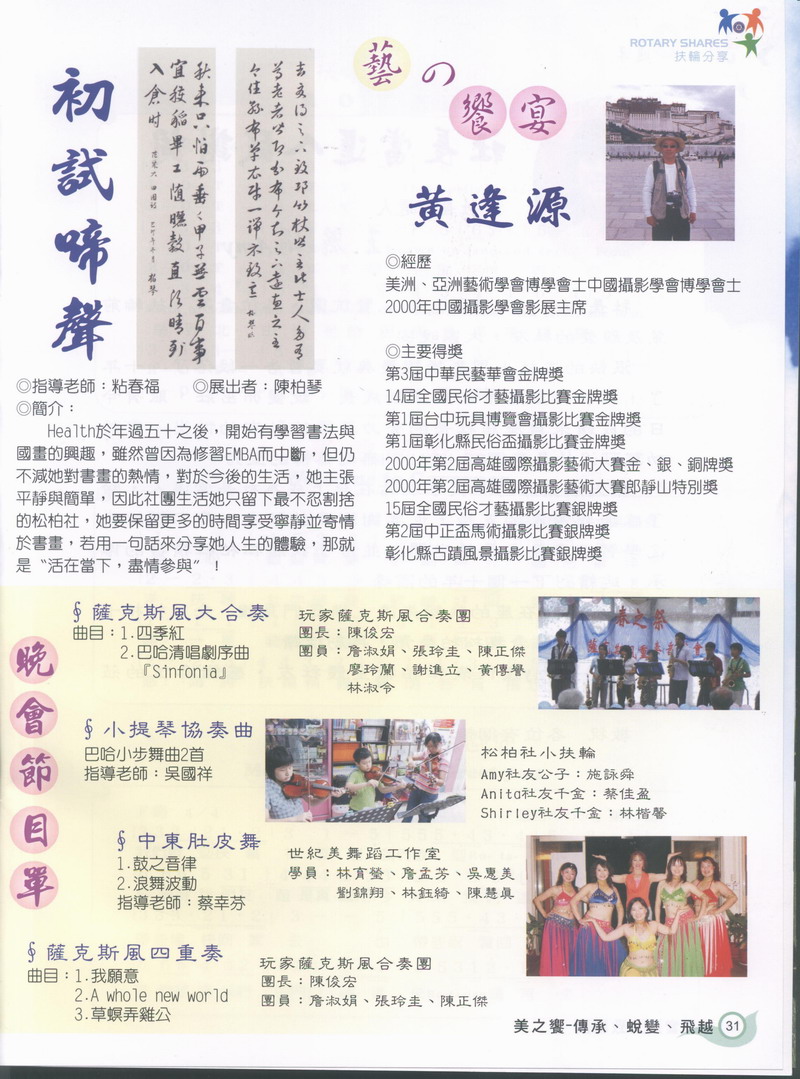 ROTARY SHARES
扶輪分享
藝の饗宴
初試啼聲
黃逢源
◎經歷
美洲、亞洲藝術學會博學會士中國攝影學會博學會士
2000年中國攝影學會影展主席
◎主要得獎
第3屆中華民藝華會金牌獎
14屆全國民俗才藝攝影比賽金牌獎
第1屆台中玩具博覽會攝影比賽金牌獎
第1屆彰化縣民俗盃攝影比賽金牌獎
2000年第2屆高雄國際攝影藝術大賽金、銀、銅牌獎
2000年第2屆高雄國際攝影藝術大賽郎靜山特別獎
15屆全國民俗才藝攝影比賽銀牌獎
第2屆中正盃馬術攝影比賽銀牌獎
彰化縣古蹟風景攝影比賽銀牌獎
◎指導老師：粘春福　◎展出者：陳柏琴
◎簡介：
Health於年過五十之後，開始有學習書法與
國畫的興趣，雖然曾因為修習EMBA而中斷，但仍
不減她對書畫的熱情，對於今後的生活，她主張
平靜與簡單，因此社團生活她只留下最不忍割捨
的松柏社，她要保留更多的時間享受寧靜並寄情
於書畫，若用一句話來分享她人生的體驗，那就
是〝活在當下，盡情參與〞！
晚會節目單
∮薩克斯風大合奏
曲目：1.四季紅
2.巴哈清唱劇序曲
『Sinfonia』
玩家薩克斯風合奏團
團長：陳俊宏
團員：詹淑娟、張玲圭、陳正傑
廖玲蘭、謝進立、黃傳譽
林淑令
春之祭
∮小提琴協奏曲
巴哈小步舞曲2首
指導老師：吳國祥
松柏社小扶輪
Amy社友公子：施詠舜
Anita社友千金：蔡佳盈
Shirley社友千金：林楷馨
∮中東肚皮舞
1.鼓之音律
2.浪舞波動
指導老師：蔡幸芬
世紀美舞蹈工作室
學員：林育瑩、詹孟芳、吳惠美
劉錦翔、林鈺綺、陳慧真
∮薩克斯風四重奏
曲目：1.我願意
2.A whole new world
3.草螟弄雞公
玩家薩克斯風合奏團
團長：陳俊宏
團員：詹淑娟、張玲圭、陳正傑
美之饗-傳承、蛻變、飛越 31